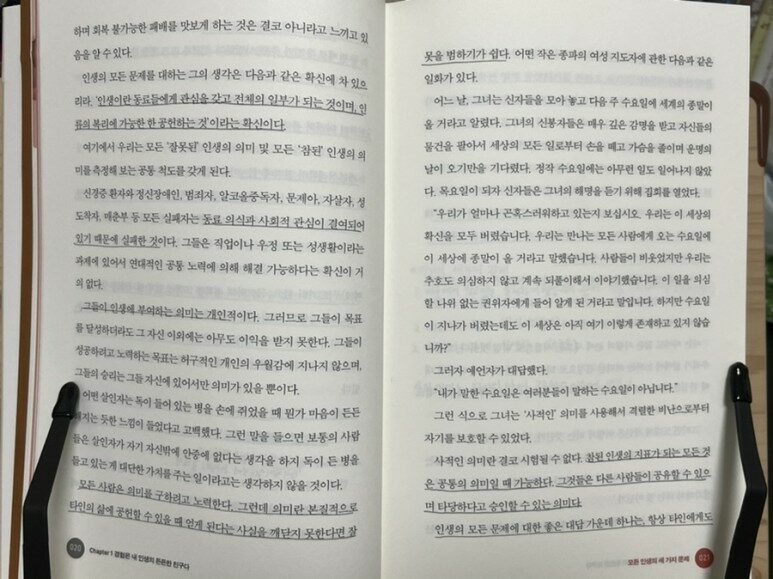 하며 회복 불가능한 패배를 맛보게 하는 것은 결코 아니라고 느끼고 있
음을 알 수 있다.
인생의 모든 문제를 대하는 그의 생각은 다음과 같은 확신에 차 있으
리라. '인생이란 동료들에게 관심을 갖고 전체의 일부가 되는 것이며, 인
류의 복리에 가능한 한 공헌하는 것'이라는 확신이다.
여기에서 우리는 모든 '잘못된' 인생의 의미 및 모든 '참된' 인생의 의
미를 측정해 보는 공통 척도를 갖게 된다.
신경증 환자와 정신장애인, 범죄자, 알코올중독자, 문제아, 자살자, 성
도착자, 매춘부 등 모든 실패자는 동료 의식과 사회적 관심이 결여되어
있기 때문에 실패한 것이다. 그들은 직업이나 우정 또는 성생활이라는
과제에 있어서 연대적인 공통 노력에 의해 해결 가능하다는 확신이 거
의 없다.
그들이 인생에 부여하는 의미는 개인적이다. 그러므로 그들이 목표
를 달성하더라도 그 자신 이외에는 아무도 이익을 받지 못한다. 그들이
성공하려고 노력하는 목표는 허구적인 개인의 우월감에 지나지 않으며,
그들의 승리는 그들 자신에 있어서만 의미가 있을 뿐이다.
어떤 살인자는 독이 들어 있는 병을 손에 쥐었을 때 뭔가 마음이 든든
해지는 듯한 느낌이 들었다고 고백했다. 그런 말을 들으면 보통의 사람
들은 살인자가 자기 자신밖에 안중에 없다는 생각을 하지 독이 든 병을
들고 있는 게 대단한 가치를 주는 일이라고는 생각하지 않을 것이다.
모든 사람은 의미를 구하려고 노력한다. 그런데 의미란 본질적으로
타인의 삶에 공헌할 수 있을 때 얻게 된다는 사실을 깨닫지 못한다면 잘
020 Chapter 1 경험은 내 인생의 든든한 친구다
못을 범하기가 쉽다. 어떤 작은 종파의 여성 지도자에 관한 다음과 같은
일화가 있다.
어느 날, 그녀는 신자들을 모아 놓고 다음 주 수요일에 세계의 종말이
올 거라고 알렸다. 그녀의 신봉자들은 매우 깊은 감명을 받고 자신들의
물건을 팔아서 세상의 모든 일로부터 손을 떼고 가슴을 졸이며 운명의
날이 오기만을 기다렸다. 정작 수요일에는 아무런 일도 일어나지 않았
다. 목요일이 되자 신자들은 그녀의 해명을 듣기 위해 집회를 열었다.
"우리가 얼마나 곤혹스러워하고 있는지 보십시오. 우리는 이 세상의
확신을 모두 버렸습니다. 우리는 만나는 모든 사람에게 오는 수요일에
이 세상에 종말이 올 거라고 말했습니다. 사람들이 비웃었지만 우리는
추호도 의심하지 않고 계속 되풀이해서 이야기했습니다. 이 일을 의심
할 나위 없는 권위자에게 들어 알게 된 거라고 말입니다. 하지만 수요일
이 지나가 버렸는데도 이 세상은 아직 여기 이렇게 존재하고 있지 않습
니까?"
그러자 예언자가 대답했다.
"내가 말한 수요일은 여러분들이 말하는 수요일이 아닙니다."
그런 식으로 그녀는 '사적인' 의미를 사용해서 격렬한 비난으로부터
자기를 보호할 수 있었다.
사적인 의미란 결코 시험될 수 없다. 참된 인생의 지표가 되는 모든 것
은 공통의 의미일 때 가능하다. 그것들은 다른 사람들이 공유할 수 있으
며 타당하다고 승인할 수 있는 의미다.
인생의 모든 문제에 대한 좋은 대답 가운데 하나는, 항상 타인에게도
모든 인생의 세 가지 문제 021